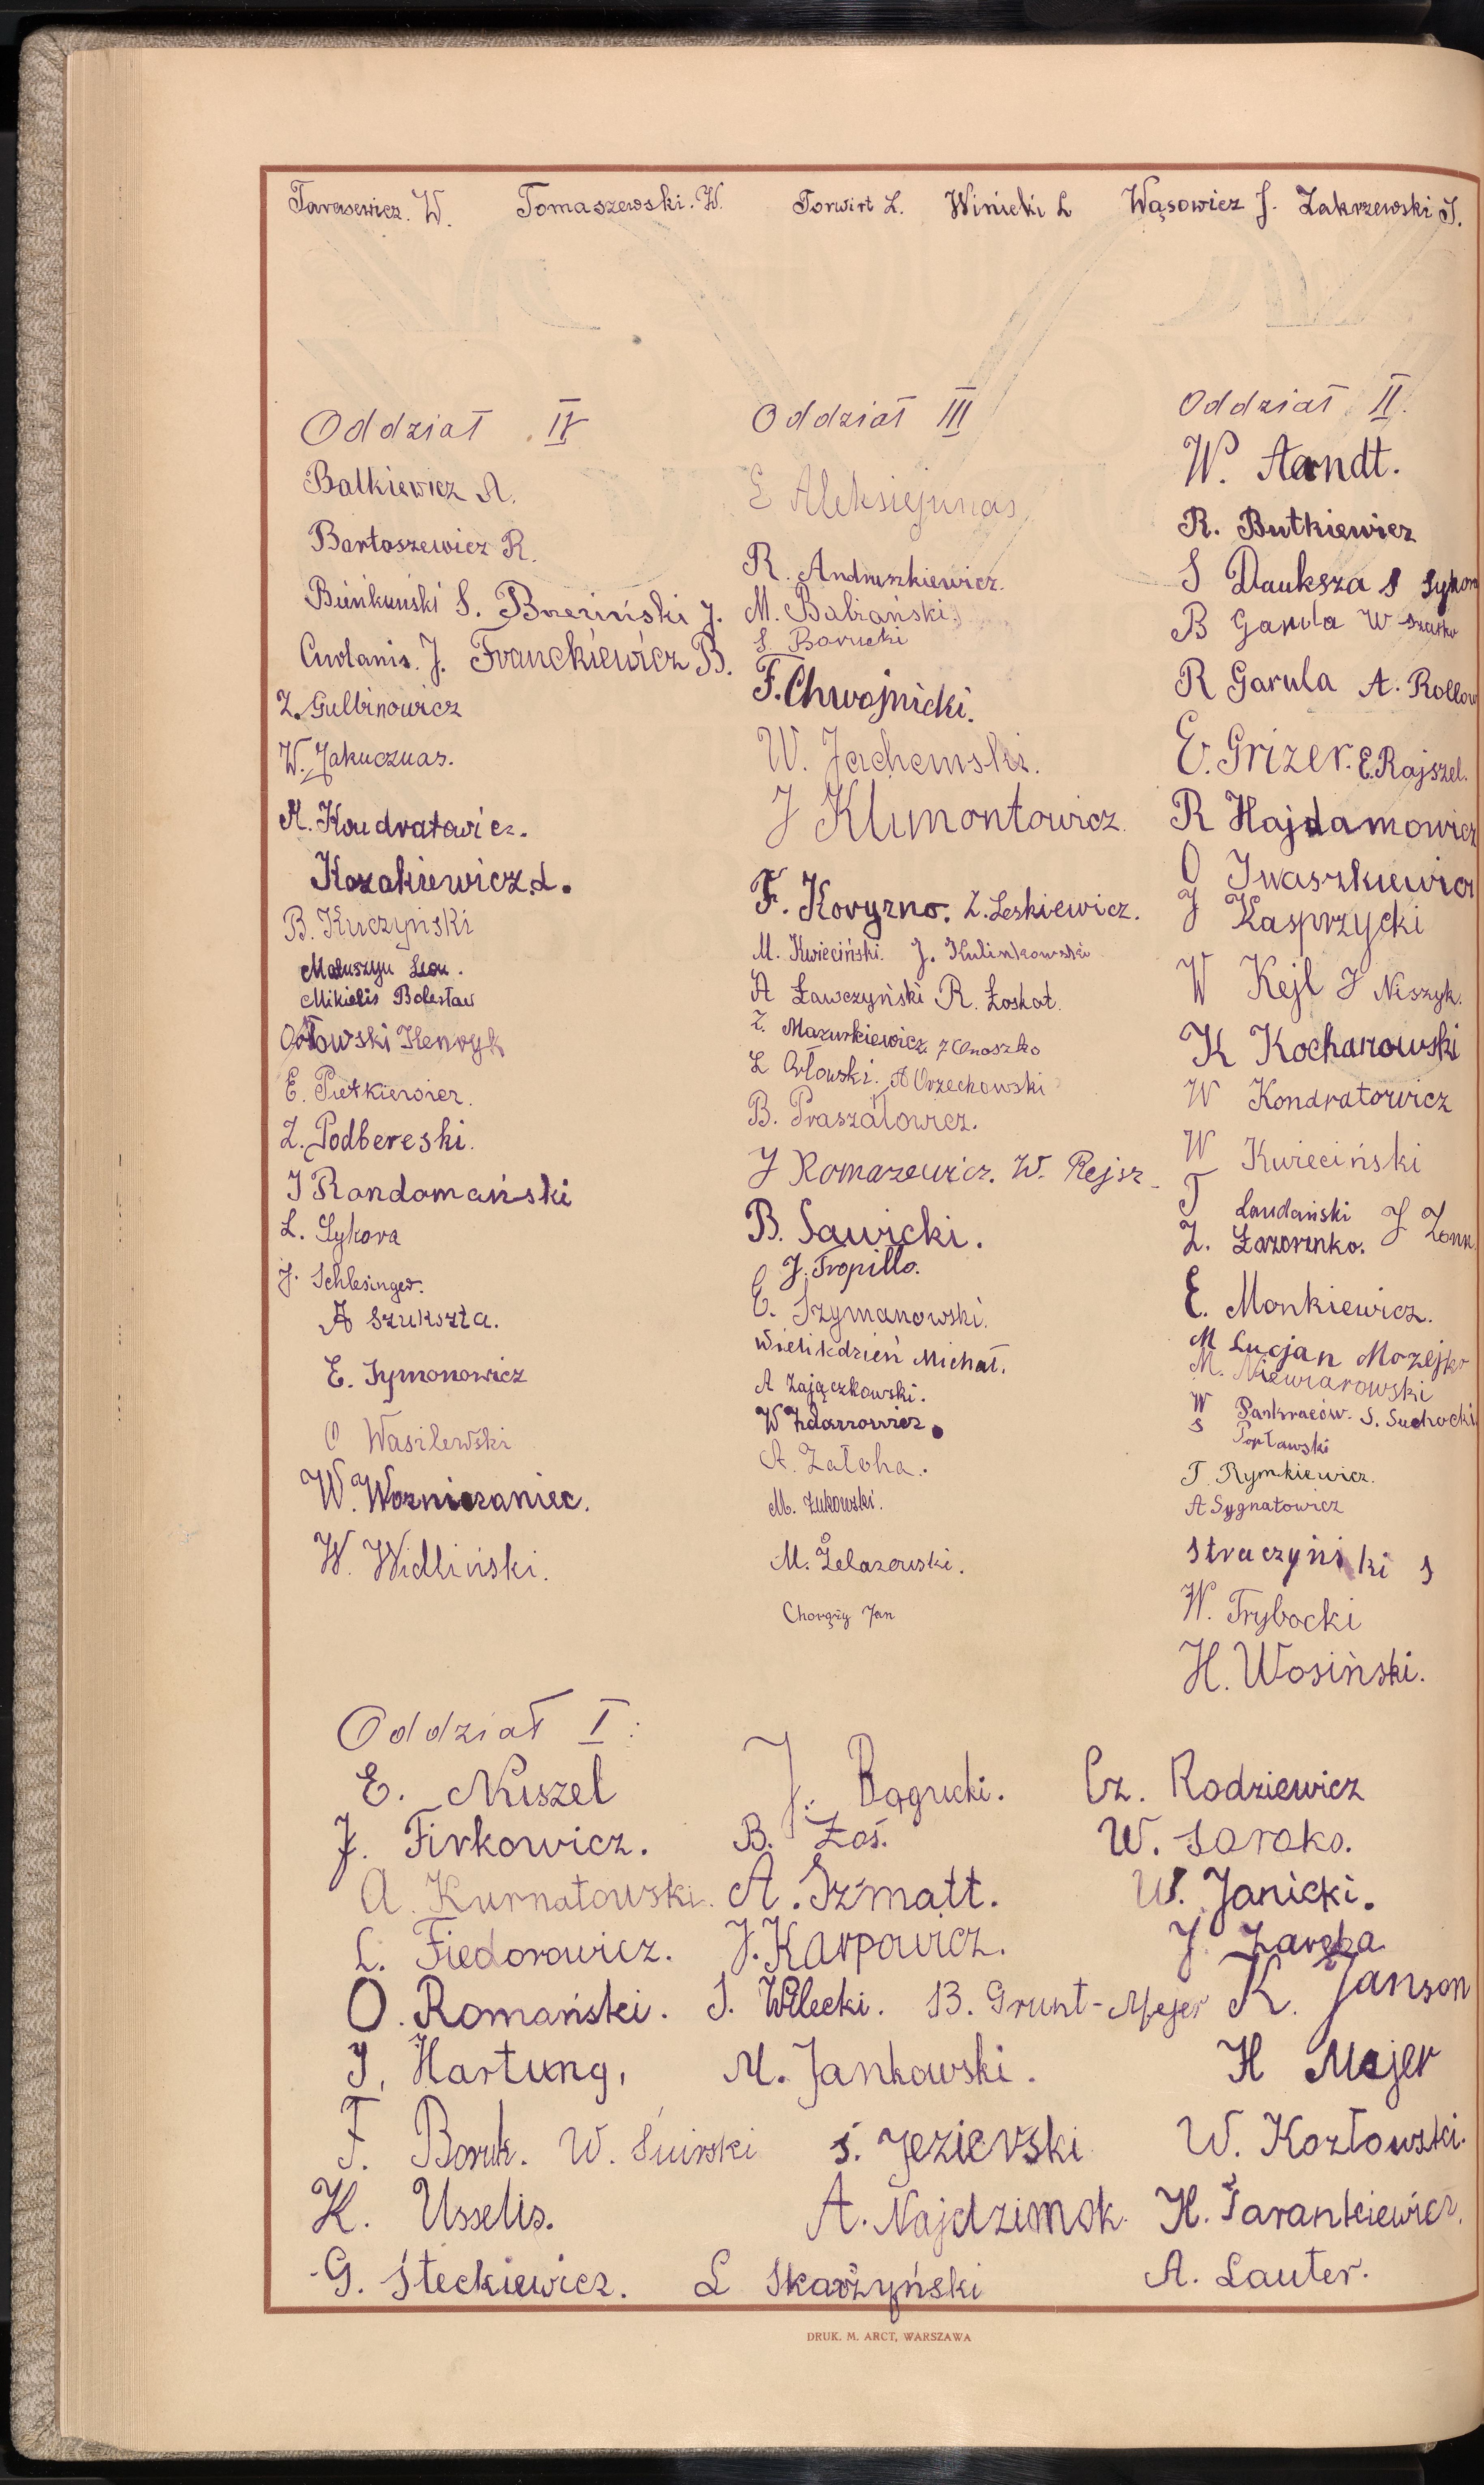 Tarasewicz. W. Tomaszewski. W. Torwirt L. Winicki L Wąsowicz J. Zakrzewski J.
Oddział IV
Balkiewicz A.
Bartoszewicz R.
Bieńkuński S. Brzeziński J.
J. Franckiewicz B.
Z. Gulbinowicz
W. Jakuczuas.
A. Kondratowicz.
Kozakiewicz. L.
B. Kuczyński
Matuszyn Leon.
Mikielis Bolesław
Orłowski Henryk
E. Pietkiewicz.
Z. Podbereski.
J Randomański
L. Sykora
J. Schlesinger.
A Szukszta.
E. Symonowicz
O Wasilewski
W. Wozniczaniec.
W. Widliński.
Oddział III
E Aleksiejunas
R. Andruszkiewicz.
M. Babiański.
S. Borucki
F. Chwojnicki.
W. Jachemski.
J Klimontowicz.
F. Koryzno. Z. Leskiewicz.
M. Kwieciński. J. Kulinkowski
A Ławczyński R. Łoskot.
Z. Mazurkiewicz. Z Onoszko
L Orłowski. A Orzechowski
B. Praszałowicz.
J Romazewicz. W. Rejsz
B. Sawicki.
J. Tropiłło.
E. Szymanowski.
Wielikdzień Michał.
A Zajączkowski.
W Zdanowicz.
A. Załoha.
M. Żukowski.
M. Żelazowski.
Chorąży Jan
Oddział II.
W. Aarndt.
R. Butkiewicz
S Dauksza S Sykor
B Garula W Szatko
R Garula A. Rollow
E. Grizer. E. Rajszel.
R Hajdamowicz
O Iwaszkiewicz
J Kasprzycki
W Kejl J Niszyk.
K Kochanowski
W Kondratowicz
W Kwieciński
T Laudański J Zonn
Z. Łazorenko.
E. Monkiewicz.
M Lucjan Możejko
M. Niewiarowski
W Pankraców. S. Suchocki
S Popławski
T. Rymkiewicz.
A Sygnatowicz
Straczyński S
W. Trybocki
H. Wosiński.
Oddział I:
E. Niszel J. Bogucki. Cz. Rodziewicz
J. Firkowicz. B. Łoś. W. Soroko.
A. Kurnatowski. A. Szmatt. W. Janicki.
L. Fiedorowicz. J. Karpowicz. J. Zaręba
O. Romański. S. Wilecki. B. Grunt-Mejer K. Janson
J. Hartung, M. Jankowski. H Majer
F. Boruk. W. Świrski S. Jezierski W. Kozłowski.
K. Usselis. A. Najdzimok. H. Tarankiewicz.
G. Steckiewicz. L Skarżyński A. Lauter.
DRUK. M. ARCT, WARSZAWA